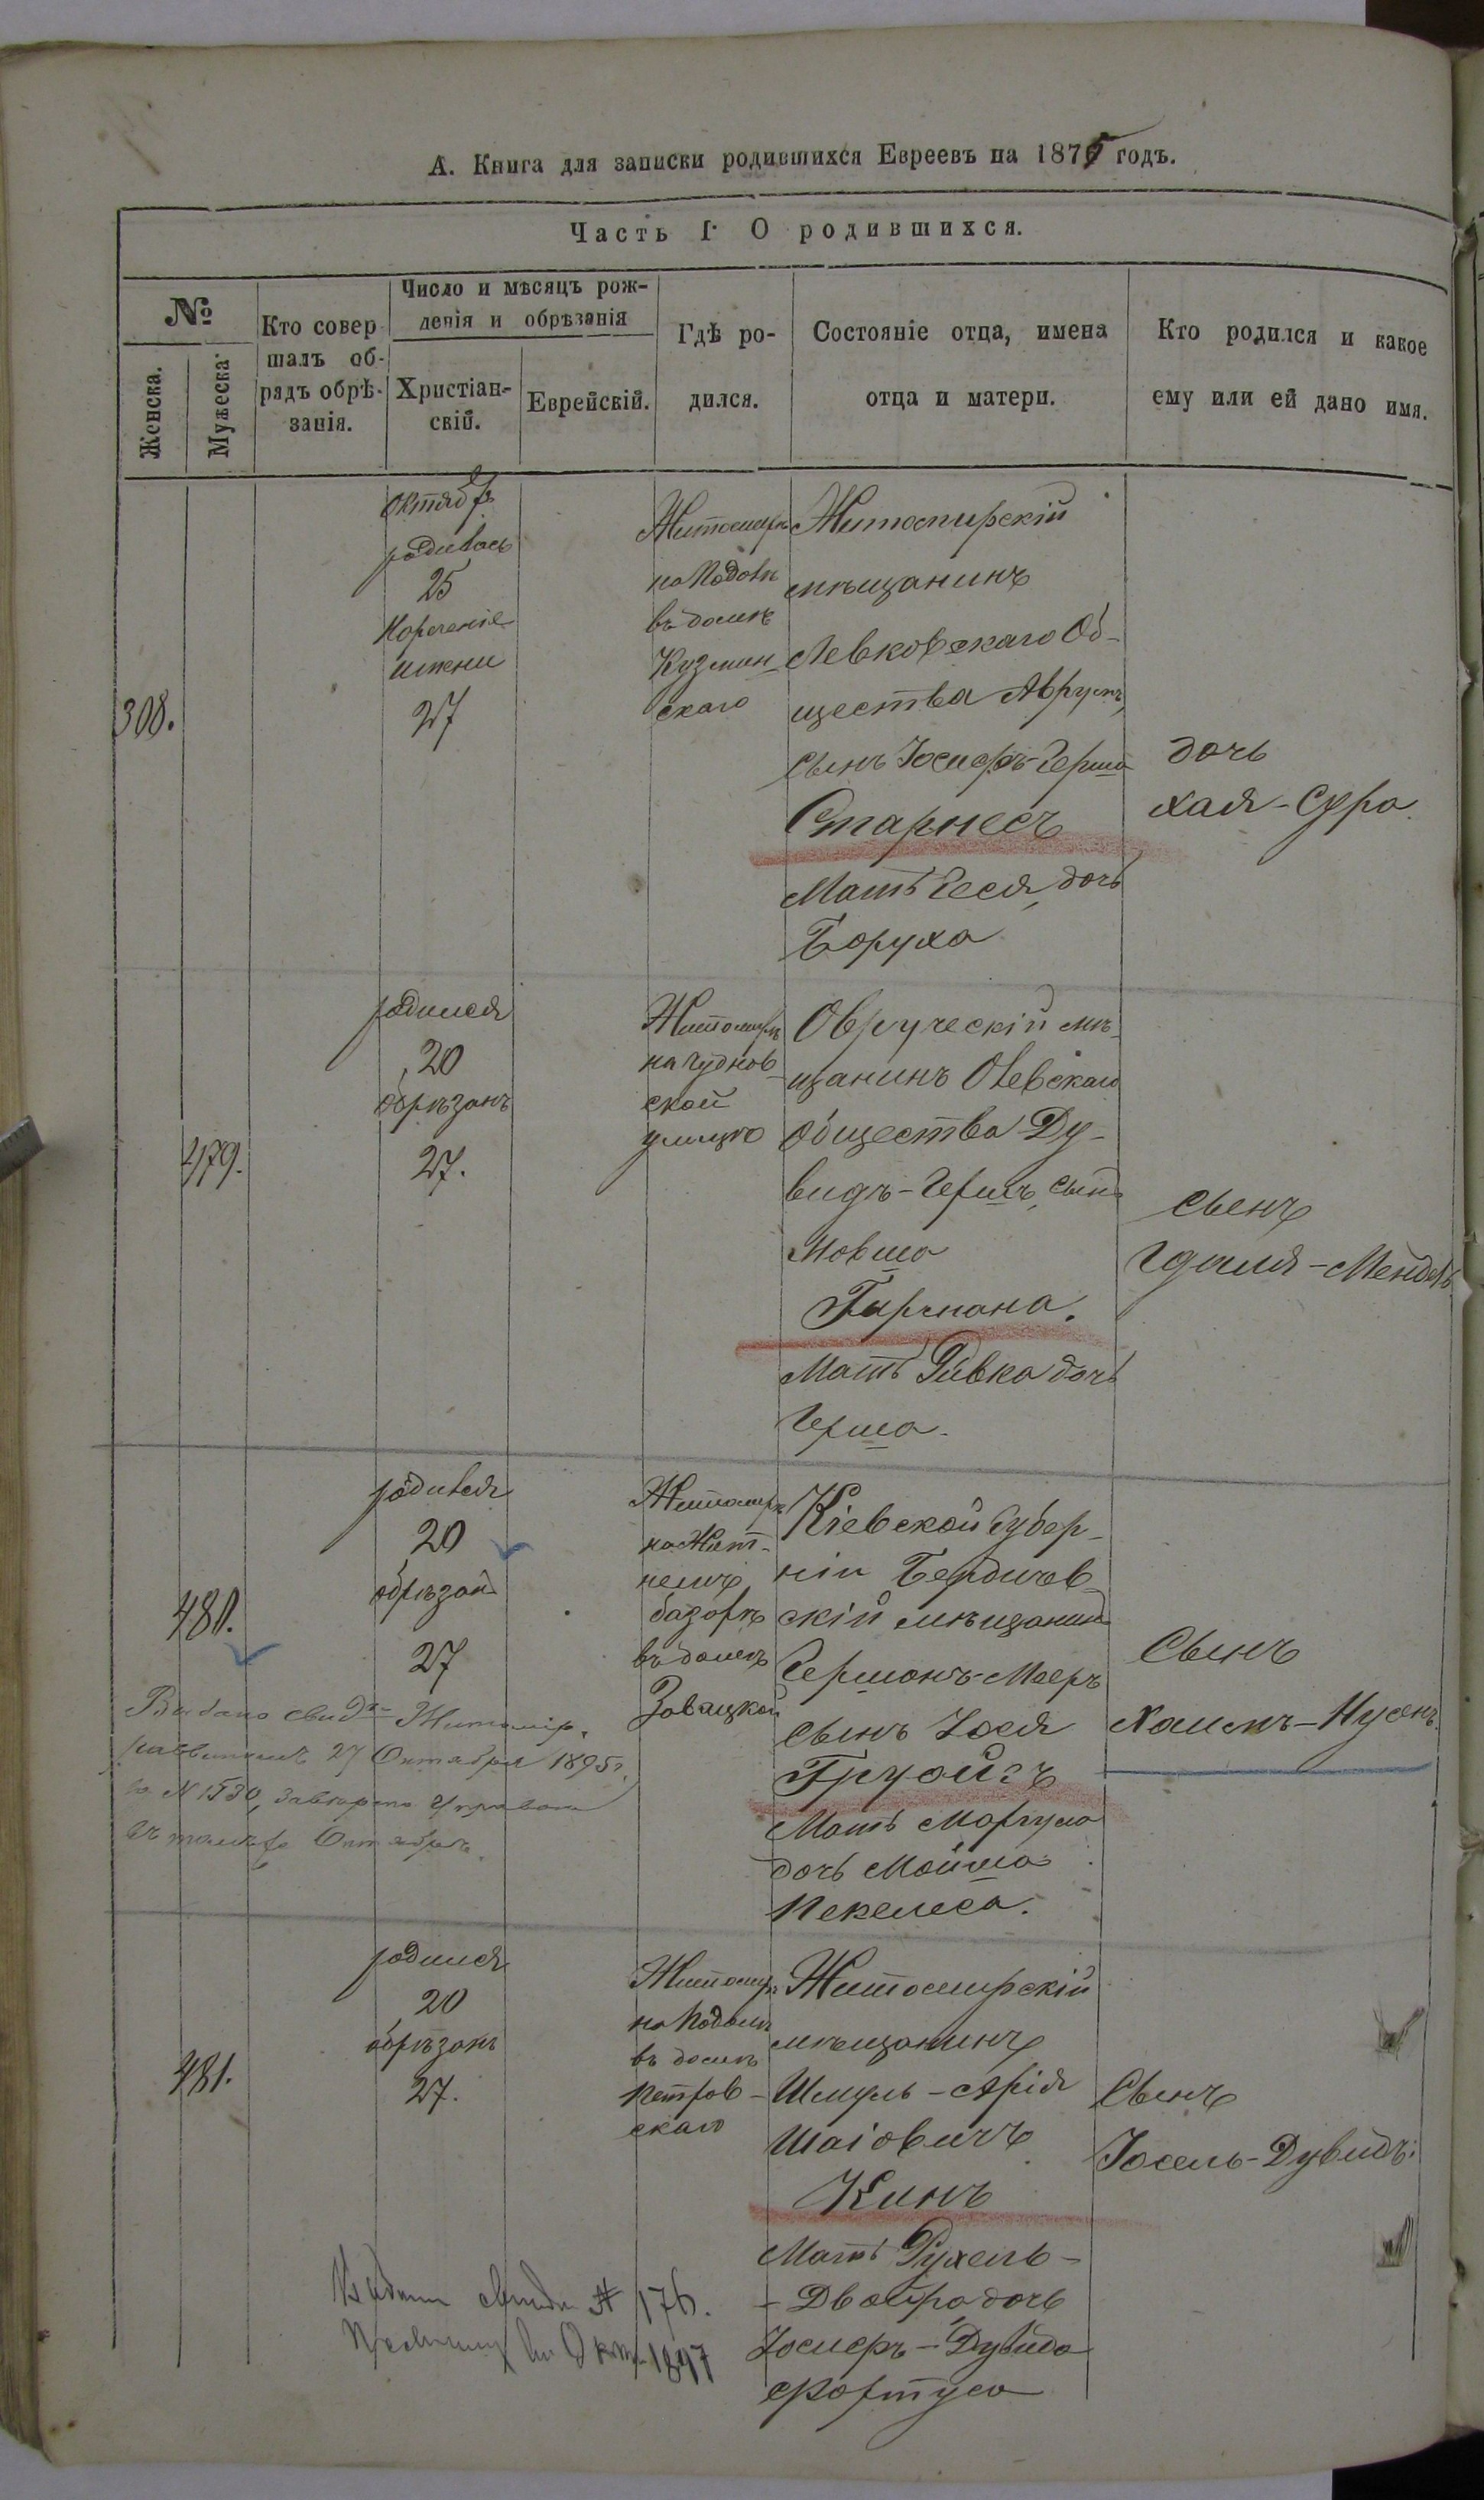 А. Книга для записки родившихся Евреевъ на 1875 годъ.
Часть I. О родившихся.
№
Женска.
Мужеска.
Кто совер
шалъ об-
рядъ обрѣ-
занія.
Число и мѣсяцъ рож-
денія и обрѣзанія
Христіан-
скій.
Еврейскій.
Гдѣ ро-
дился.
Состояніе отца, имена
отца и матери.
Кто родился и какое
ему или ей дано имя.
308.
Октяб
родилась
25
Нареченіе
имени
27
Житомиръ
на Подолѣ
въ домѣ
Кузмин-
скаго
Житомирскій
мѣщанинъ
Левковскаго Об-
щества Аврумъ,
сынъ Іосифъ-Герша
Старнесъ
Мать Геся, дочь
Боруха
дочь
Хая-Сура
479.
родился
20
обрѣзанъ
27.
Житомиръ
на Чуднов-
ской
улицѣ
Овручскій мѣ-
щанинъ Олевскаго
общества Ду-
видъ-Гершъ, сынъ
Мовша
Гирмана.
Мать Ривка дочь
Герша.
сынъ
Гдаля-Мендель
480.
родился
20
обрѣзан
27
Житомиръ
на Жит-
немъ
базарѣ
въ домѣ
Кіевской Губер-
ніи Бердичев-
скій мѣщанинъ
Гершонъ-Мееръ
сынъ Хая
Груойсъ
Мать Маргуля
дочь Мойша
Пекелеса.
Сынъ
Хаимъ-Нусенъ.
Выдано свид. Житомір.
раввиномъ 27 Октября 1895 г.
за N 1530,
Октября.
481.
родился
20
обрѣзанъ
27.
Житомиръ
на Подолѣ
въ домѣ
Петров-
скаго
Житомирскій
мѣщанинъ
Шмуль-Арія
Шаіовичъ
Кинъ
Мать Рухель-
-Двойра дочь
Іосифъ-Дувида
Фортуса
Сынъ
Іосель-Дувидъ.
176.
1897